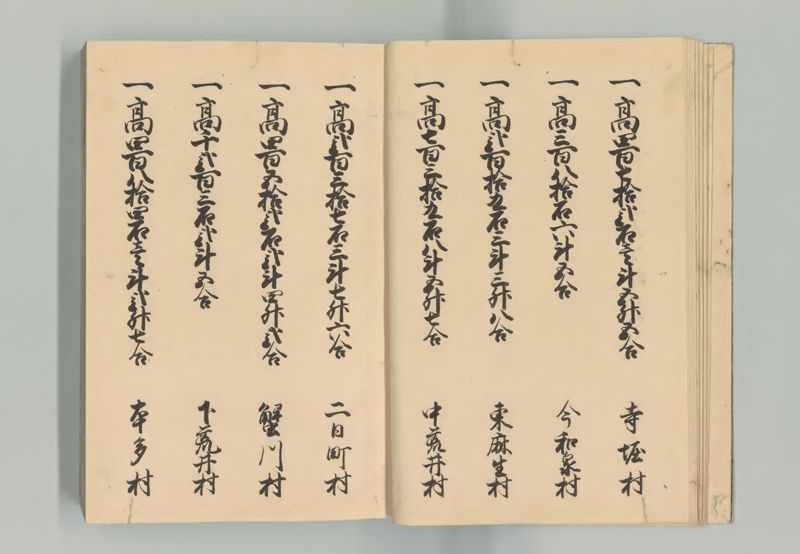 一高四百七拾弐石壱斗五升五合 寺堀村
一高三百八拾石六斗五合 今和泉村
一高弐百拾五石三斗三升八合 東麻生村
一高七百三拾五石八斗五升七合 中荒井村
一高弐百三拾七石三斗七升六合 二日町村
一高四百五拾弐石弐斗四升弐合 蟹川村
一高千弐百三石弐斗五合 下荒井村
一高四百八拾四石壱斗弐升七合 本多村